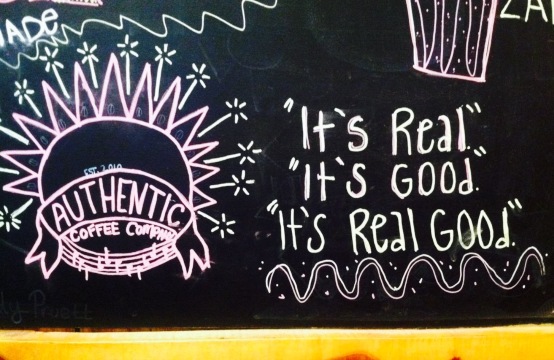 MADE
EST. 2010
AUTHENTIC
COFFEE COMPANY
"It's Real."
"It's Good."
"It's Real Good."
Pruett